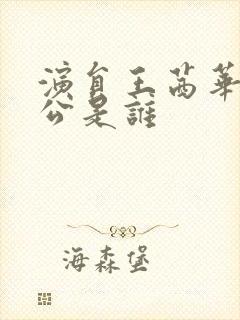 演員王茜華
公是誰
海森堡